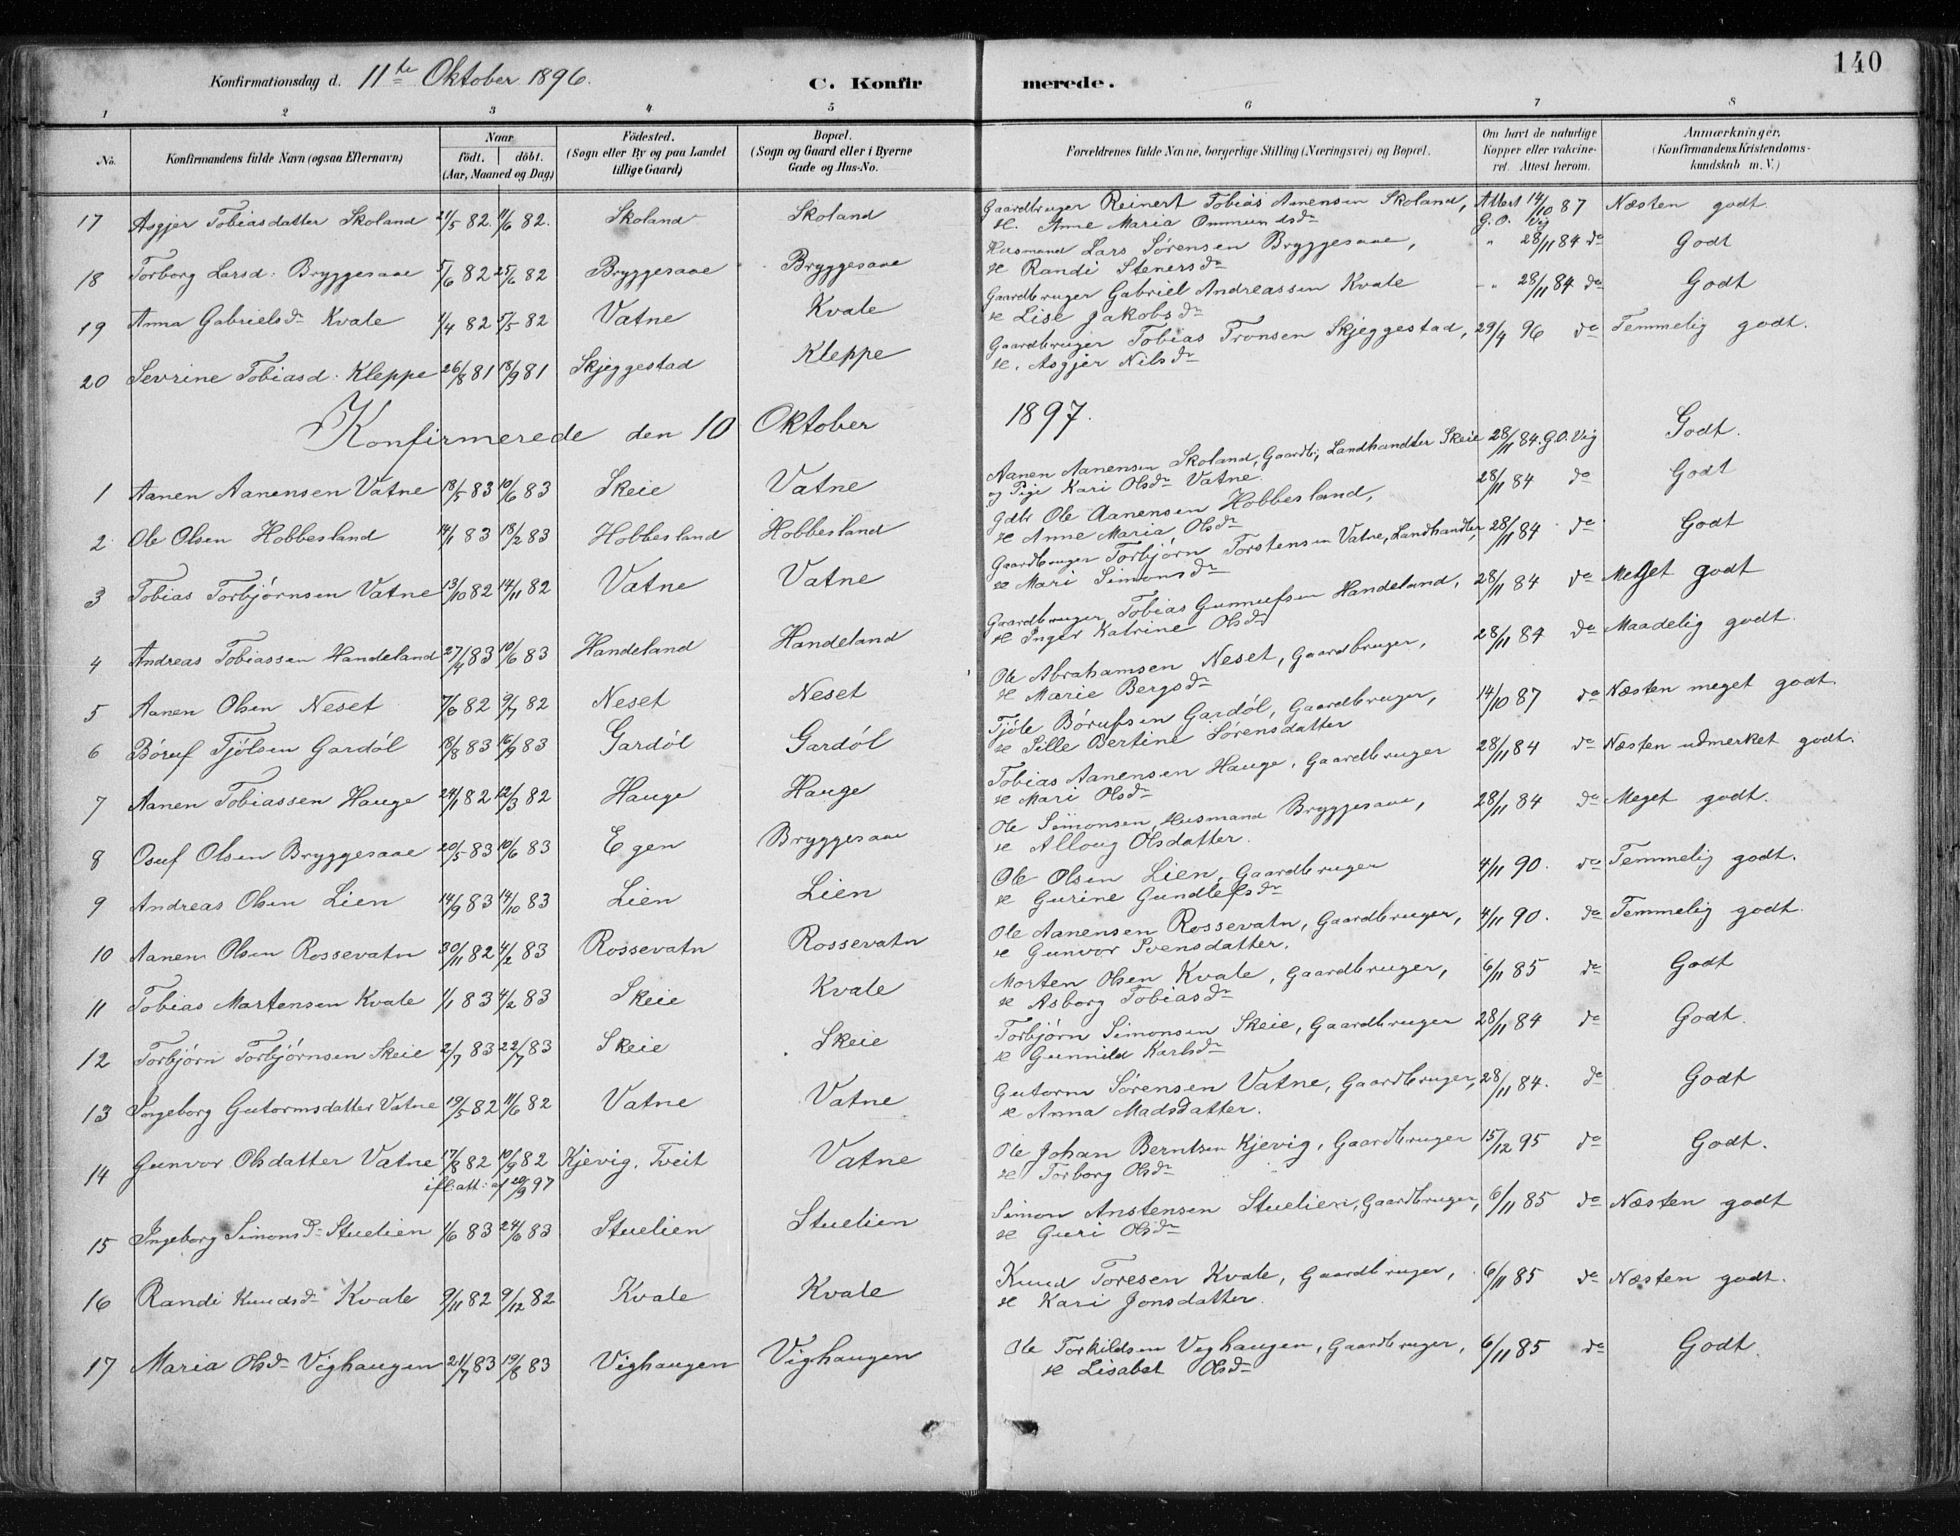 140
Konfirmationsdag d. 11te Oktober 1896. C. Konfir merede.
1 2 3 4 5 6 7 8
No. Konfirmandens fulde Navn (ogsaa Efternavn) Naar født. døbt. (Aar, Maaned og Dag) Fødested. (Sogn eller By og paa Landet tillige Gaard) Bopæl. (Sogn og Gaard eller i Byerne Gade og Hus-No. Forældrenes fulde Navne, borgerlige Stilling (Næringsvei) og Bopæl. Om havt de naturlige Kopper eller vakcineret. Attest herom. Anmærkninger. (Konfirmandens Kristendomskundskab m. V.)
17 Asgjer Tobiasdatter Skoland 21/5 82. 11/6 82. Skoland Skoland Gaardbruger Reinert Tobias Aanensen Skoland, Attest 14/10 87 Næsten godt
H. Anne Maria Ommundsdr G.O. Vig
18 Torborg Larsd: Bryggesaae 5/6 82 25/6 82 Bryggesaae Bryggesaae Husmand Lars Sørensen Bryggesaae, " 28/11 84 do Godt
H Randi Stenersdr
19 Anna Gabrielsdr Kvale 1/4 82 7/5 82 Vatne Kvale Gaardbruger Gabriel Andreassen Kvale - " 28/11 84 do Godt
H Lise Jakobsdr
20 Sevrine Tobiasd: Kleppe 26/8 81 18/9 81 Skjeggestad Kleppe Gaardbruger Tobias Tronsen Skjeggestad, 29/4 96 do Temmelig godt.
H. Asgjer Nilsdr
Konfirmerede den 10 Oktober 1897.
1 Aanen Aanensen Vatne 18/5 83 10/6 83 Skeie Vatne Aanen Aanensen Skoland, Gaardb;, Landhandler Skeie 28/11 84. G.O. Vig Godt.
og Pige Kari Olsdr Vatne.
2 Ole Olsen Hobbesland 14/1 83 18/2 83 Hobbesland Hobbesland Gdbr Ole Aanensen Hobbesland, 28/11 84 do Godt
H Anne Maria Olsdr
3 Tobias Torbjørnsen Vatne 13/10 82 14/11 82 Vatne Vatne Gaardbruger Torbjørn Torstensen Vatne, Landhandler, 28/11 84 do Godt
H Mari Simonsdr
4 Andreas Tobiassen Handeland 27/4 83 10/6 83 Handeland Handeland Gaardbruger Tobias Gunnufsen Handeland, 28/11 84 do Meget godt
H Inger Katrine Olsdr
5 Aanen Olsen Neset 7/6 82 9/7 82 Neset Neset Ole Abrahamsen Neset, Gaardbruger, 28/11 84 do Maadelig godt.
H Marie Bergsdr
6 Børuf Tjølsen Gardøl 18/8 83 16/9 83 Gardøl Gardøl Tjøle Børufsen Gardøl, Gaardbruger, 14/10 87 do Næsten meget godt.
H Sille Bertine Sørensdatter
7 Aanen Tobiassen Hauge 24/1 82 12/3 82 Hauge Hauge Tobias Aanensen Hauge, Gaardbruger 28/11 84 do Næsten udmerket godt.
H Mari Olsdr
8 Osuf Olsen Bryggesaae 20/5 83 10/6 83 Egen Bryggesaae Ole Simonsen, Husmand Bryggesaae, 28/11 84 do Meget godt.
H Alloug Olsdatter.
9 Andreas Olsen Lien 14/9 83 14/10 83 Lien Lien Ole Olsen Lien, Gaardbruger 4/11 90. do Temmelig godt.
H Gurine Gundlefsdr
10 Aanen Olsen Rossevatn 30/11 82 4/2 83 Rossevatn Rossevatn Ole Aanensen Rossevatn, Gaardbruger, 4/11 90. do Temmelig godt.
H Gunvor Svensdatter.
11 Tobias Martensen Kvale 1/1 83 4/2 83 Skeie Kvale Morten Olsen Kvale, Gaardbruger, 6/11 85 do Godt
H Asborg Tobiasdr
12 Torbjørn Torbjørnsen Skeie 2/7 83 22/7 83 Skeie Skeie Torbjørn Simonsen Skeie, Gaardbruger 28/11 84 do Godt.
H Gunnild Karlsdr
13 Ingeborg Gutormsdatter Vatne 19/5 82 11/6 82 Vatne Vatne Gutorm Sørensen Vatne, Gaardbruger, 28/11 84. do Godt
H Anna Madsdatter.
14 Gunvor Olsdatter Vatne 17/8 82 10/9 82 Kjevig, Tveit Vatne Ole Johan Berntsen Kjevig, Gaardbruger 15/12 95 do Godt.
ifl: att: af 20/9 97 H Torborg Olsdr
15 Ingeborg Simonsdr Stuelien 1/6 83 24/6 83 Stuelien Stuelien Simon Anstensen Stuelien, Gaardbruger, 6/11 85 do Næsten godt
H Guri Olsdr
16 Randi Knudsdr Kvale 9/11 82 9/12 82 Kvale Kvale Knud Toresen Kvale, Gaardbruger, 6/11 85 do Næsten godt.
H Kari Jonsdatter.
17 Maria Olsdr Vighaugen 21/7 83 19/8 83 Vighaugen Vighaugen Ole Torkildsen Veghaugen, Gaardbruger, 6/11 85 do Godt.
H Lisabet Olsdr